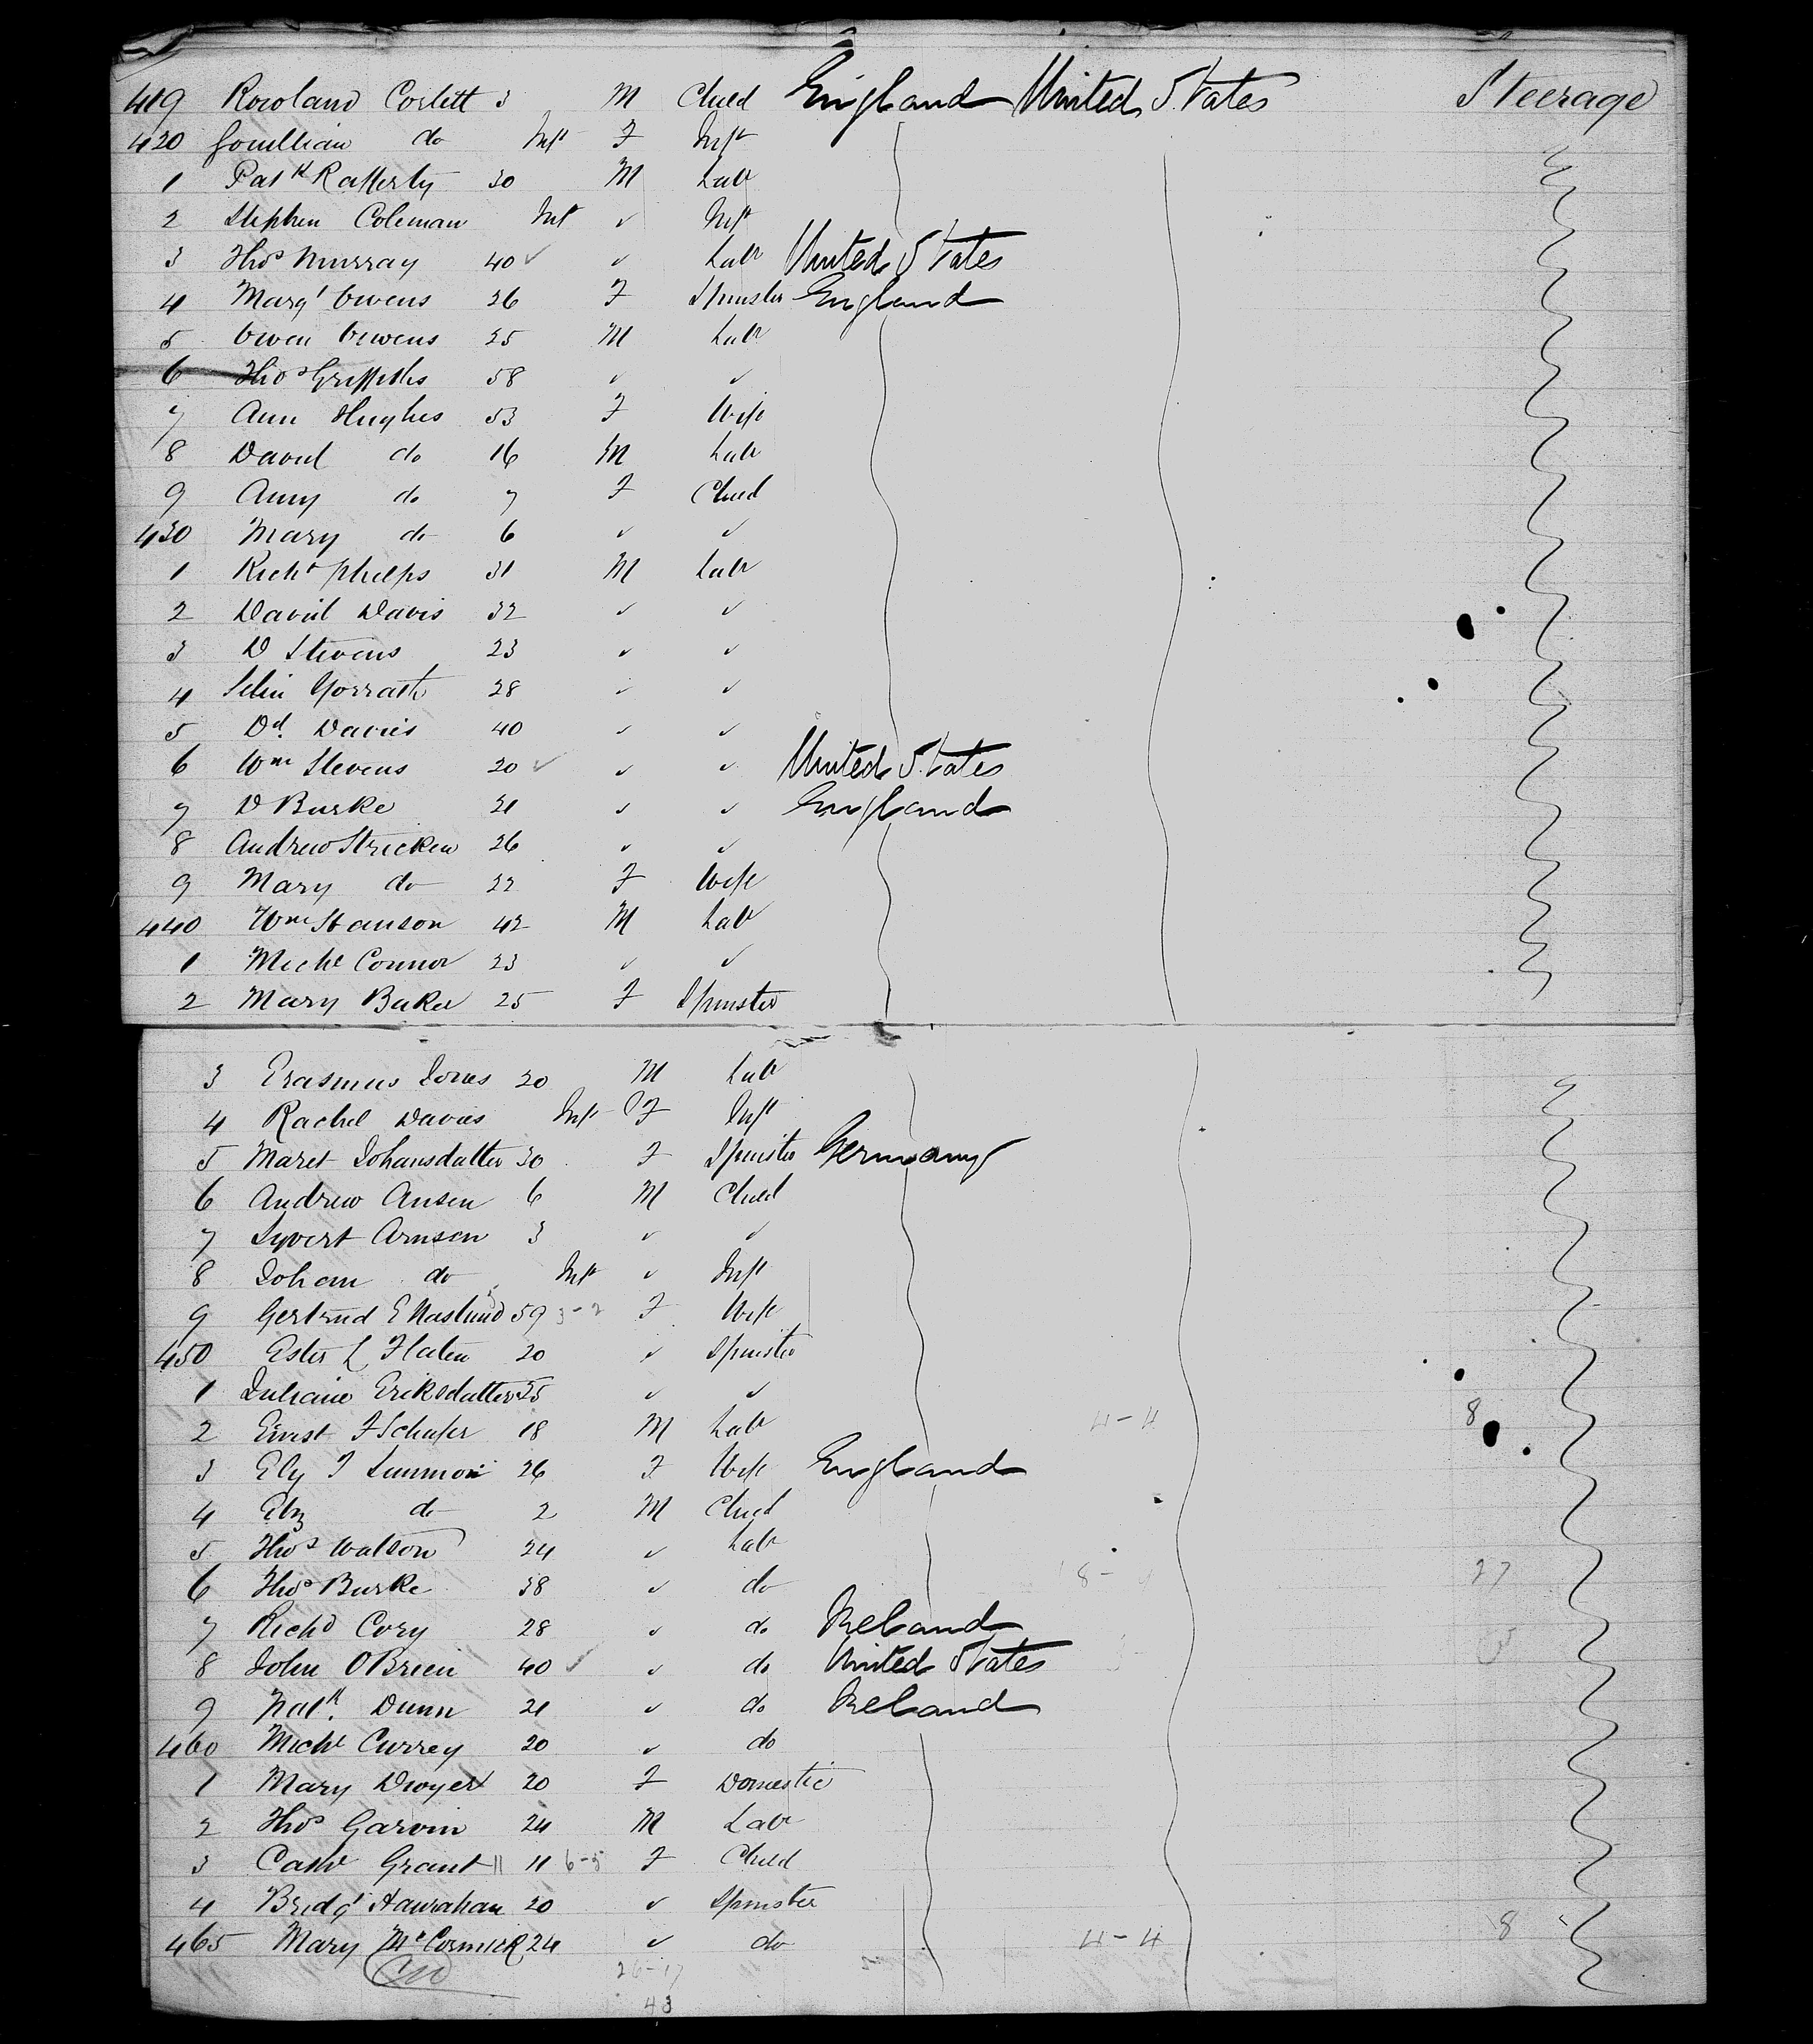 419 Rowland Corlett 3 M Child England United States Steerage
420 do Inft F Inft
1 Patk Rafferty 30 M Labr
2 Stephen Coleman Inft ✓ Inft
3 Thos Murray 40 ✓ ✓ Labr United States
4 Margt Owens 26 F Spinster England
5 Owen Owens 25 M Labr
6 Thos Griffiths 58 ✓ ✓
7 Ann Hughes 53 F Wife
8 David do 16 M Labr
9 Amy do 7 F Child
430 Mary do 6 ✓ ✓
1 Richd Phelps 31 M Labr
2 David Davis 32 ✓ ✓
3 D Stevens 23 ✓ ✓
4 28 ✓ ✓
5 Dd. Davies 40 ✓ ✓
6 Wm Stevens 20 ✓ ✓ ✓ United States
7 D Burke 21 ✓ ✓ England
8 Andrew Stricken 26 ✓ ✓
9 Mary do 22 F Wife
440 Wm 42 M Labr
1 Michl Connor 23 ✓ ✓
2 Mary Baker 25 F Spinster
3 Erasmus Jones 20 M Labr
4 Rachel Davies Inft F Inft
5 Maret Johansdatter 30 F Spinster Germany
6 Andrew Ansen 6 M Child
7 Syvert Arnsen 3 ✓ ✓
8 Johan do Inft ✓ Inft
9 Gertrud E Naslund 59 3-2 F Wife
450 Ester L Flaten 20 ✓ Spinster
1 Juliane Eriksdatter 25 ✓ ✓
2 Ernst F Schafer 18 M Labr 4-4 8
3 F 26 F Wife England
4 Ebz do 2 M Child
5 Thos Watson 24 ✓ Labr
6 Thos Burke 38 ✓ do 27
7 Richd Cory 28 ✓ do Ireland
8 John OBrien 40 ✓ ✓ do United States
9 Patk. Dunn 21 ✓ do Ireland
460 Michl Currey 20 ✓ do
1 Mary Dwyer 20 F Domestic
2 Thos Garvin 24 M Labr
3 Cathe Grant 11 11 6-5 F Child
4 Bridgt Hanrahan 20 ✓ Spinster
465 Mary McCormick 24 ✓ do 4-4 8
26-17
43